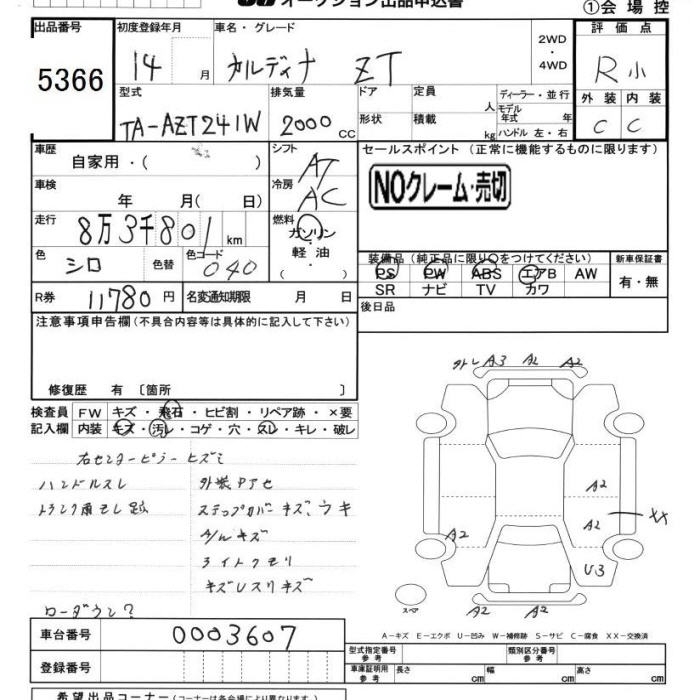 オークション出品申込書
①会場控
出品番号 初度登録年月 車名・グレード 評価点
5366 14 月 カルディナ ZT 2WD・4WD R 小
型式 排気量 ドア 定員 人 ディーラー・並行 外装 内装
TA-AZT241W 2000 CC 形状 積載 kg モデル年式 年 ハンドル 左・右 C C
車歴 自家用・( ) シフト AT セールスポイント (正常に機能するものに限ります)
車検 年 月( 日) 冷房 AC NOクレーム・売切
走行 8万3千801 km 燃料 ガソリン・軽油・( )
色 シロ 色替 色コード 040 装備品 (純正品に限り○をつけてください) 新車保証書
PS PW ABS エアB AW 有・無
SR ナビ TV カワ
R券 11780円 名変通知期限 月 日 後日品
注意事項申告欄 (不具合内容等は具体的に記入して下さい)
修復歴 有 〔箇所 〕
検査員 FW キズ・飛石・ヒビ割・リペア跡・×要
記入欄 内装 キズ・汚レ・コゲ・穴・スレ・キレ・破レ
右センターピラーヒズミ
ハンドルスレ 外装Pアセ
トランク雨モレ跡 ステップカバーキズ、ウキ
A/Wキズ
ライトクモリ
ガラスリキズ
ローダウン?
外レ A3 A2 A2
A2
A2 XX
A2
U3
スペア A2 A2
A−キズ E−エクボ U−凹み W−補修跡 S−サビ C−腐食 XX−交換済
車台番号 0003607
登録番号
型式指定番号 参考 類別区分番号 参考
車庫証明用 参考 長さ cm 幅 cm 高さ cm
希望出品コーナー (コーナーは各会場により異なります。)